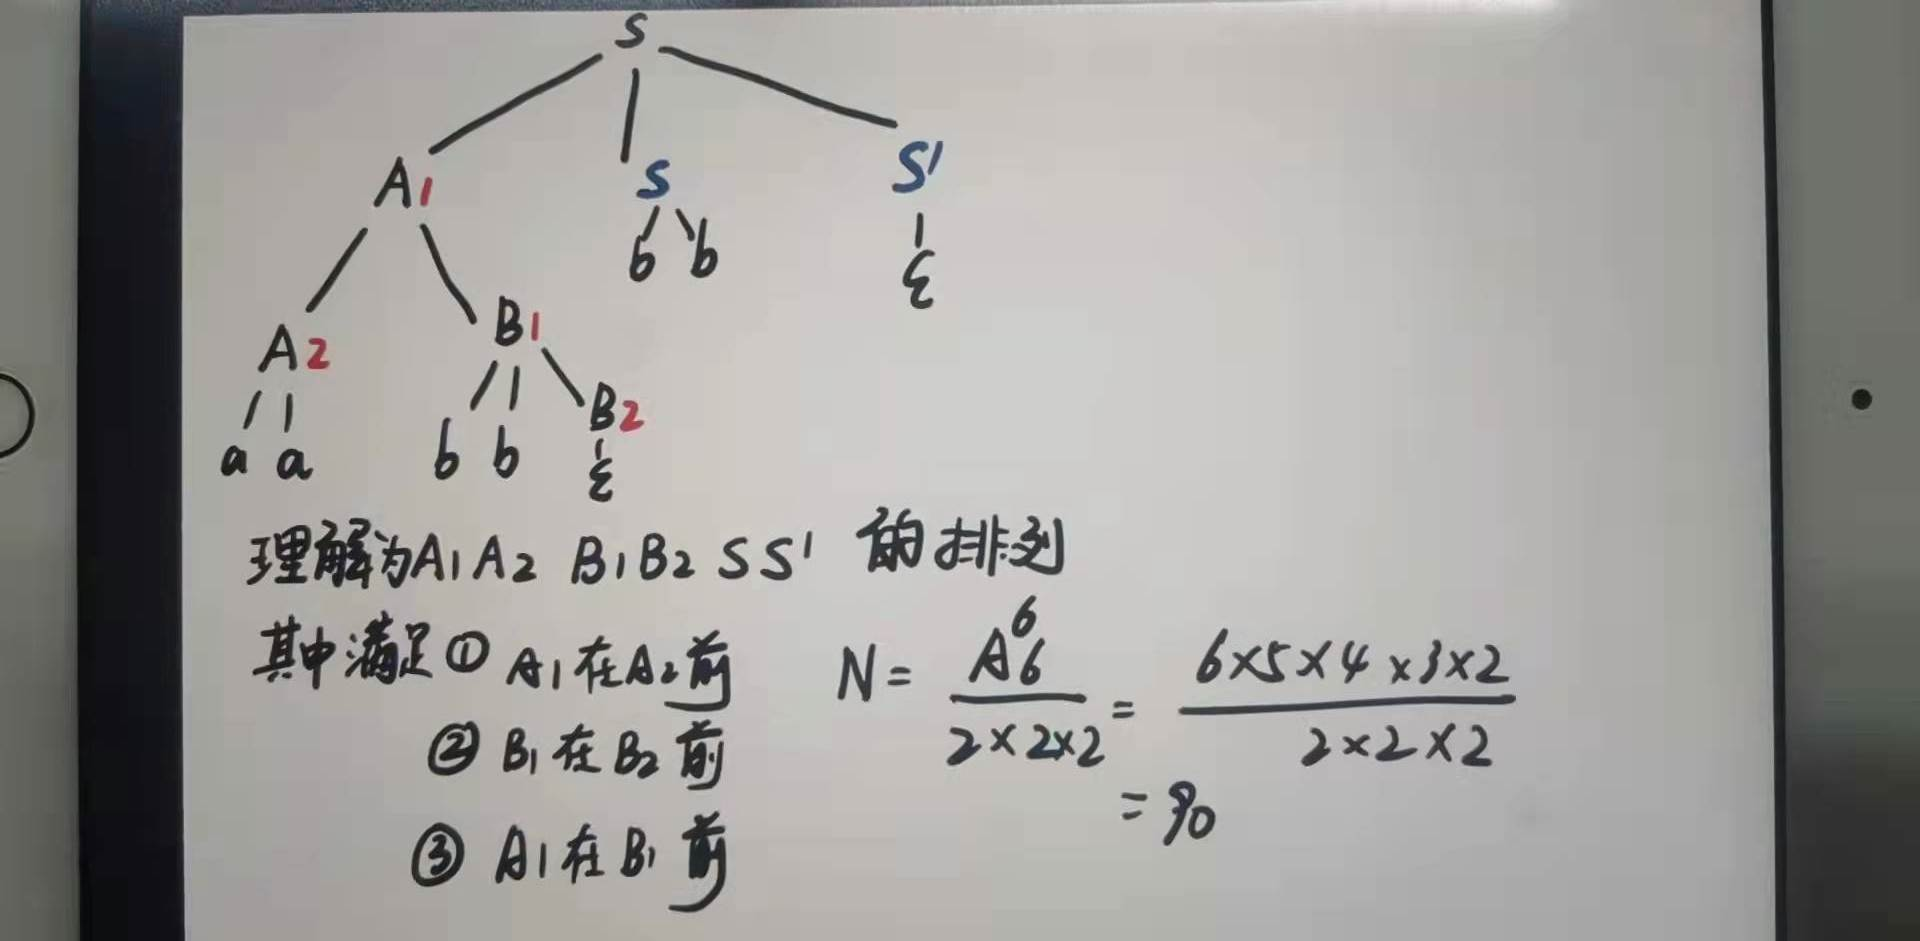 S
A1 S S'
b b ε
A2 B1
B2
a a b b ε
理解为A1 A2 B1 B2 S S' 的排列
其中满足① A1在A2前
② B1在B2前
③ A1在B1前
N = A_6^6 / 2×2×2 = 6×5×4×3×2 / 2×2×2
= 90